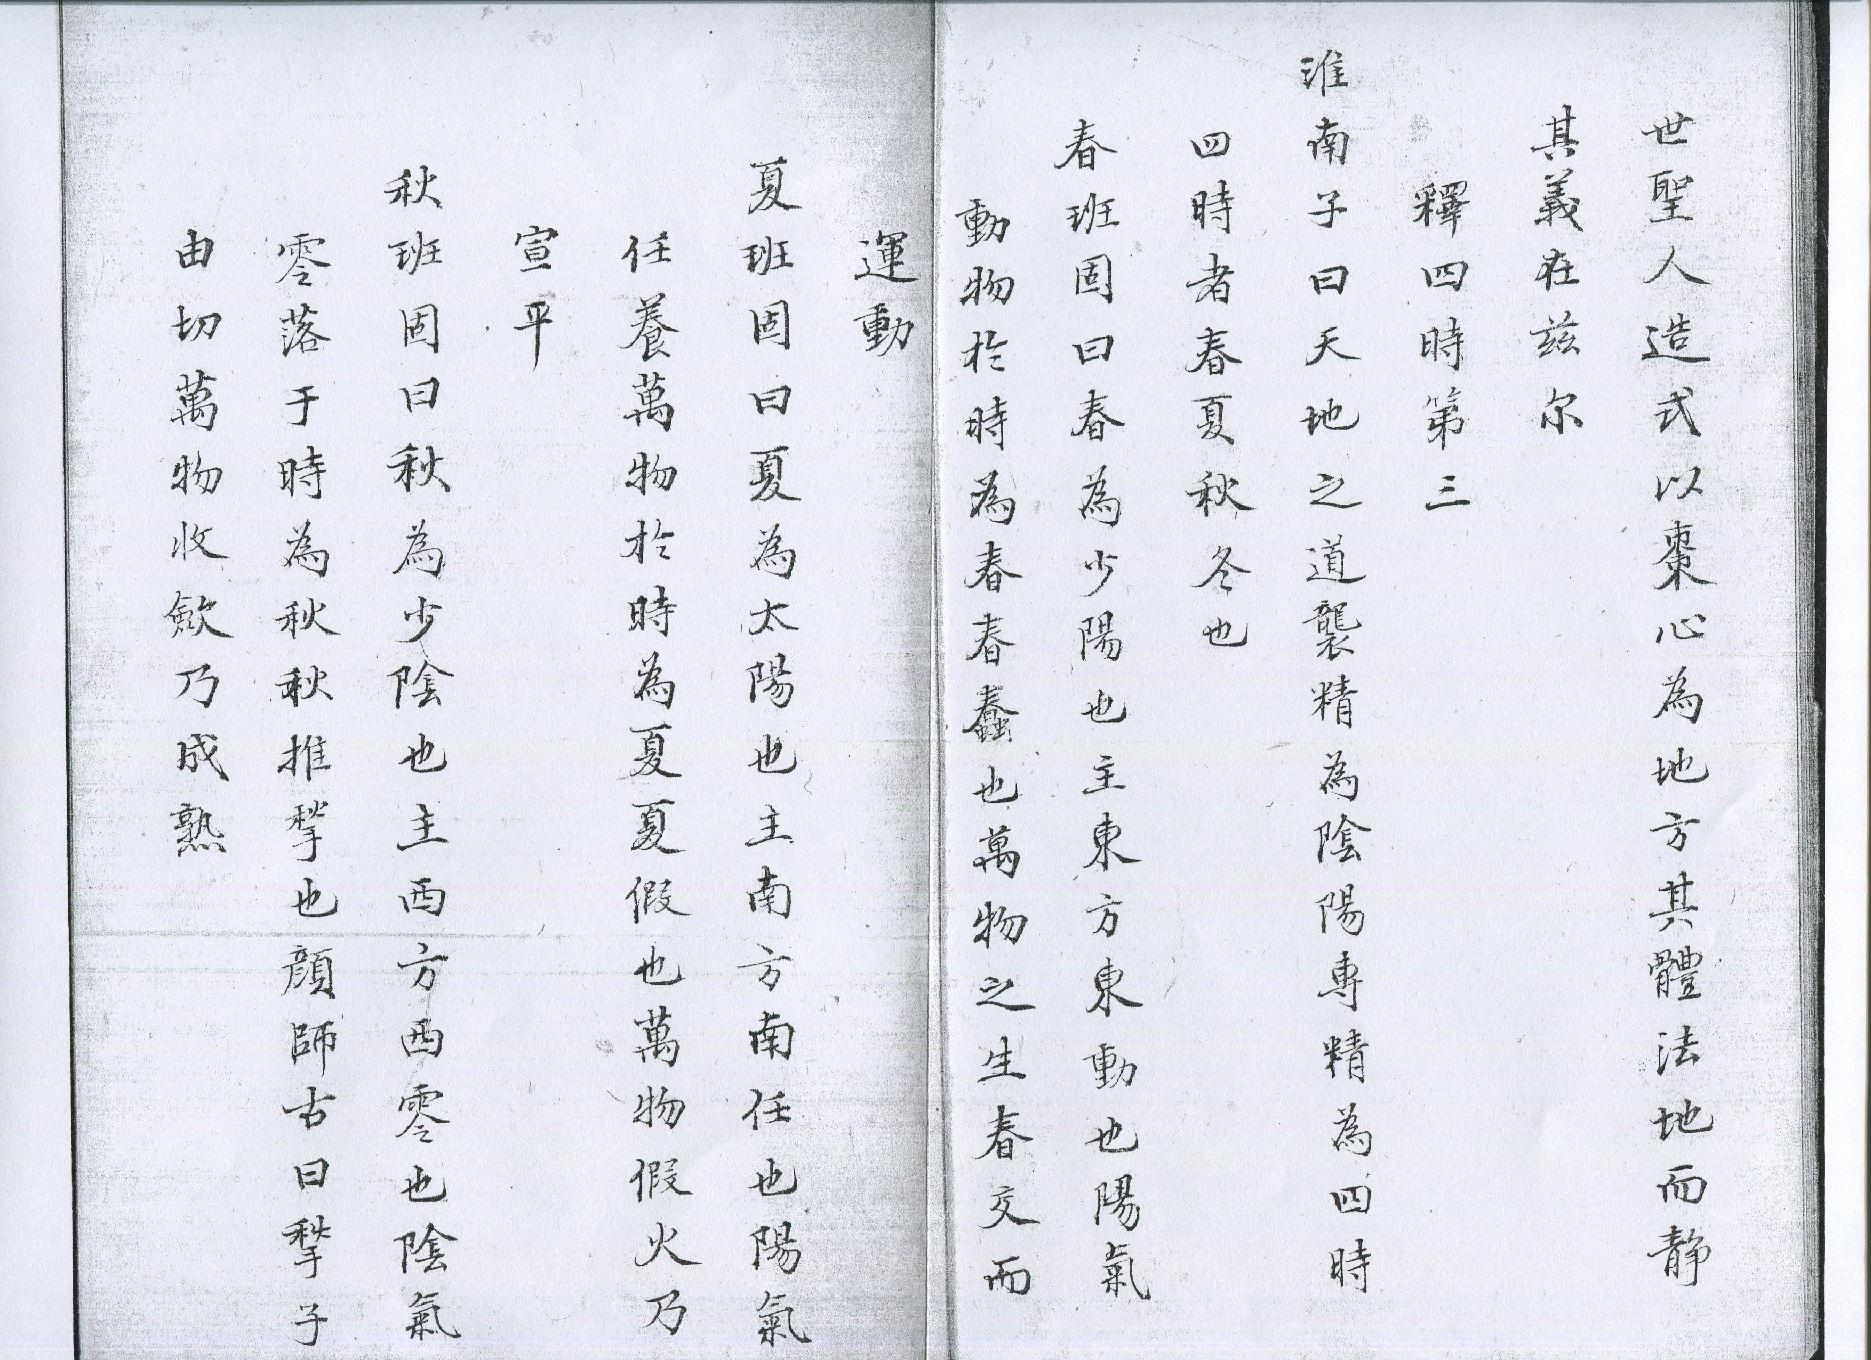 世聖人造式以棗心為地方其體法地而静
其義在茲尔
釋四時第三
淮南子曰天地之道襲精為陰陽專精為四時
四時者春夏秋冬也
春班固曰春為少陽也主東方東動也陽氣
動物於時為春春蠢也萬物之生春交而
運動
夏班固曰夏為太陽也主南方南任也陽氣
任養萬物於時為夏夏假也萬物假火乃
宣平
秋班固曰秋為少陰也主西方西零也陰氣
零落于時為秋秋推揫也顔師古曰揫子
由切萬物收斂乃成熟